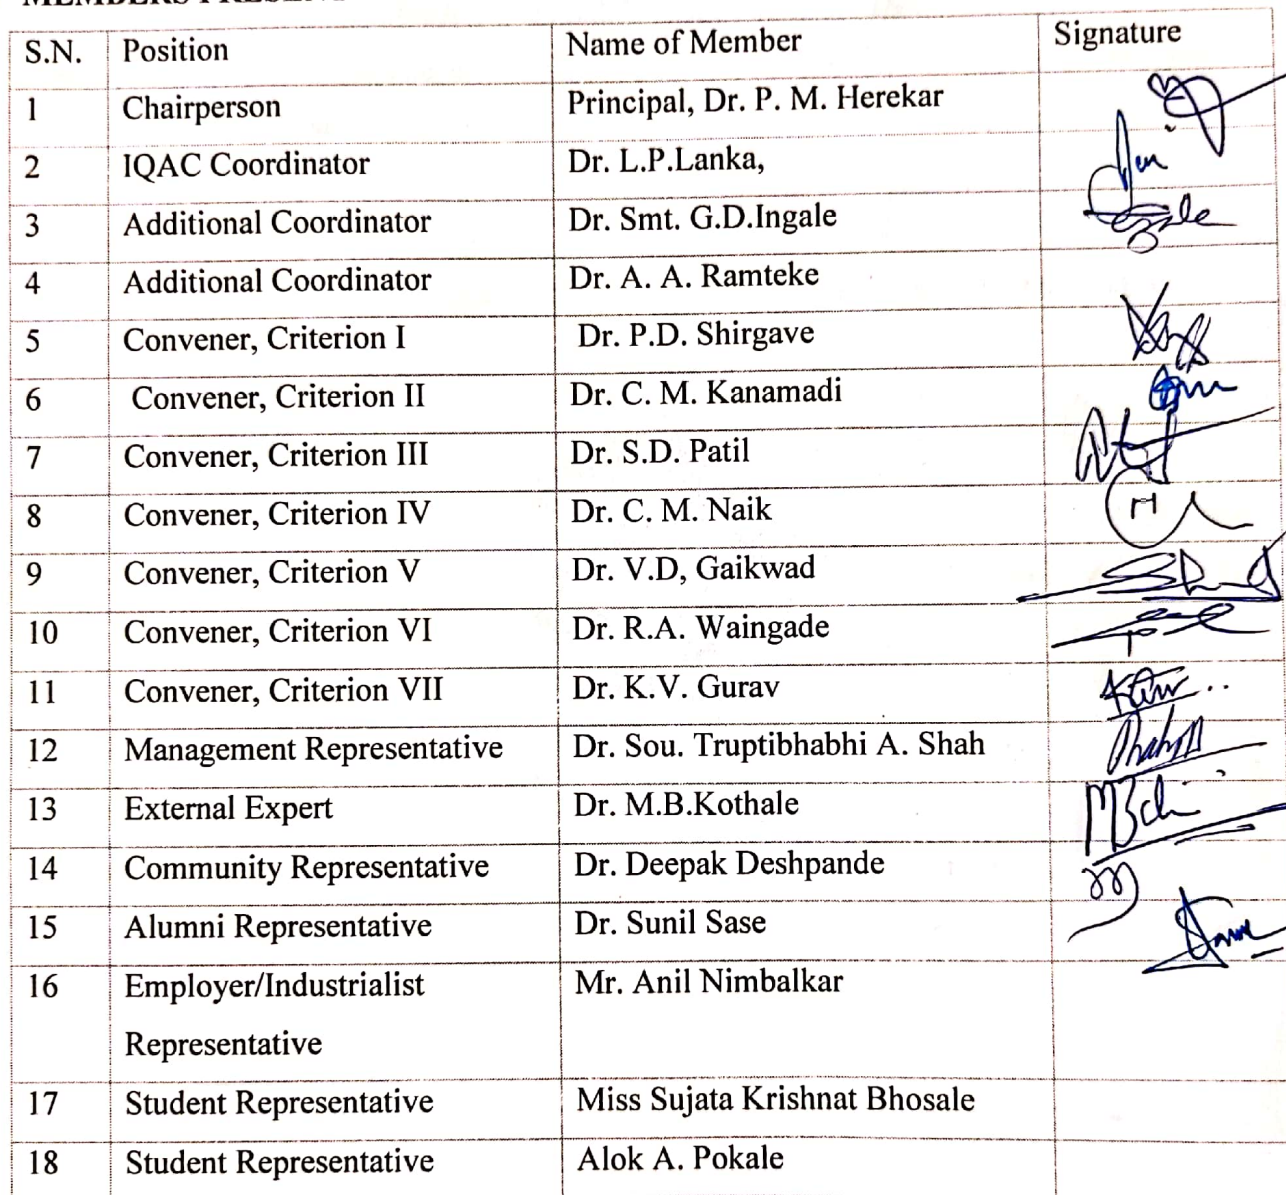 MEMBERS PRESENT
S.N. Position Name of Member Signature
1 Chairperson Principal, Dr. P. M. Herekar
2 IQAC Coordinator Dr. L.P.Lanka,
3 Additional Coordinator Dr. Smt. G.D.Ingale
4 Additional Coordinator Dr. A. A. Ramteke
5 Convener, Criterion I Dr. P.D. Shirgave
6 Convener, Criterion II Dr. C. M. Kanamadi
7 Convener, Criterion III Dr. S.D. Patil
8 Convener, Criterion IV Dr. C. M. Naik
9 Convener, Criterion V Dr. V.D, Gaikwad
10 Convener, Criterion VI Dr. R.A. Waingade
11 Convener, Criterion VII Dr. K.V. Gurav
12 Management Representative Dr. Sou. Truptibhabhi A. Shah
13 External Expert Dr. M.B.Kothale
14 Community Representative Dr. Deepak Deshpande
15 Alumni Representative Dr. Sunil Sase
16 Employer/Industrialist Mr. Anil Nimbalkar
Representative
17 Student Representative Miss Sujata Krishnat Bhosale
18 Student Representative Alok A. Pokale